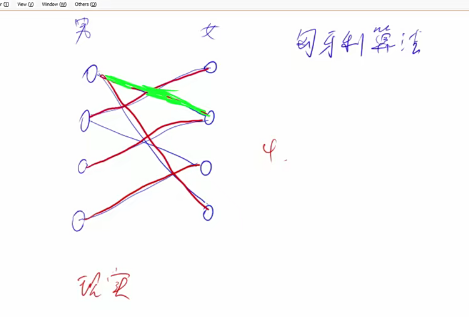 View (V) Window (W) Others (O)
男 女
匈牙利算法
4.
现实